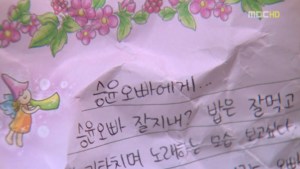 MBC HD
승윤오빠에게...
승윤오빠 잘지내? 밥은 잘먹고
기타치며 노래하는 모습 보고싶다.